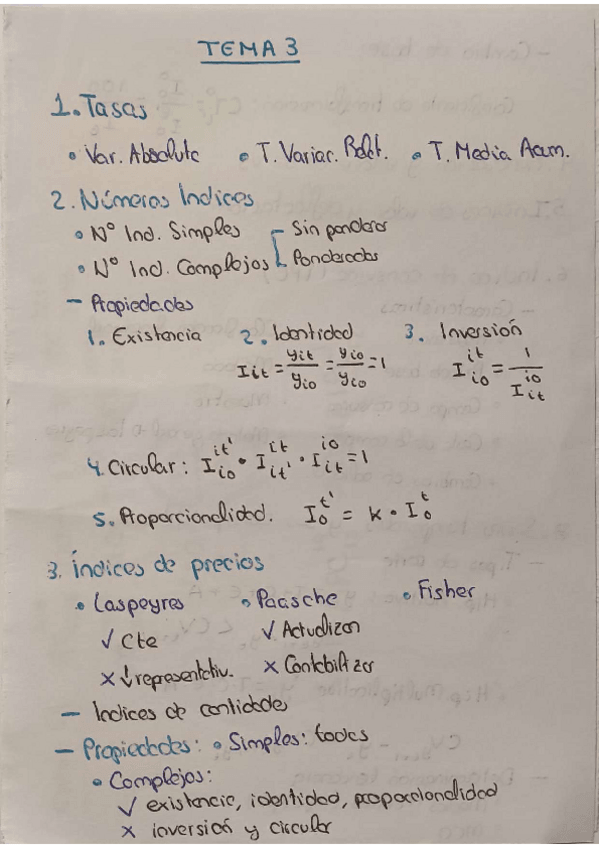 TEMA 3
1. Tasas
• Var. Absolute • T. Variac. Relat. • T. Media Acum.
2. Números Indices
• Nº Ind. Simples
• Nº Ind. Complejos Sin ponderar
Ponderados
- Propiedades
1. Existencia 2. Identidad 3. Inversión
I it = yit/yio = yio/yio = 1 I it io = 1/I io it
4. Circular: I it' io • I it it' • I io it = 1
5. Proporcionalidad. I t' o = K • I t o
3. Índices de precios
• Laspeyres • Paasche • Fisher
✓ Cte ✓ Actualizan
× ↓ representativ. ×
- Indices de cantidades
- Propiedades: • Simples: todas
• Complejos:
✓ existencia, identidad, proporcionalidad
× inversión y circular